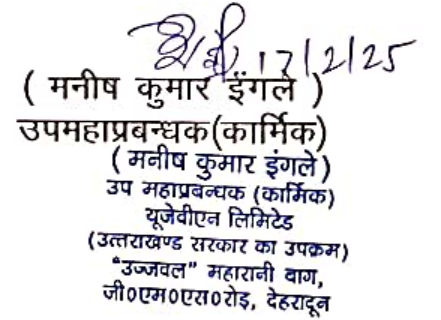 17/2/25
( मनीष कुमार इंगले )
उपमहाप्रबन्धक(कार्मिक)
( मनीष कुमार इंगले )
उप महाप्रबन्धक (कार्मिक)
यूजेवीएन लिमिटेड
(उत्तराखण्ड सरकार का उपक्रम)
"उज्जवल" महारानी बाग,
जी०एम०एस०रोड़, देहरादून